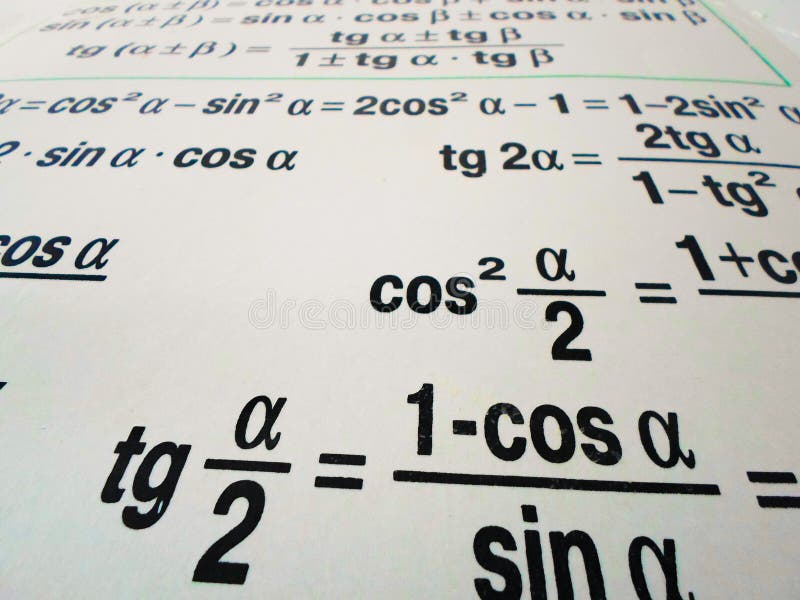 cos (α ± β) = cos α · cos β ∓ sin α · sin β
sin (α ± β) = sin α · cos β ± cos α · sin β
tg (α ± β) = (tg α ± tg β) / (1 ± tg α · tg β)
α = cos² α – sin² α = 2cos² α – 1 = 1–2sin² α
2 · sin α · cos α tg 2α = 2tg α / 1–tg²
cos α
cos² α/2 = 1+co
tg α/2 = 1-cos α / sin α =
dreamstime